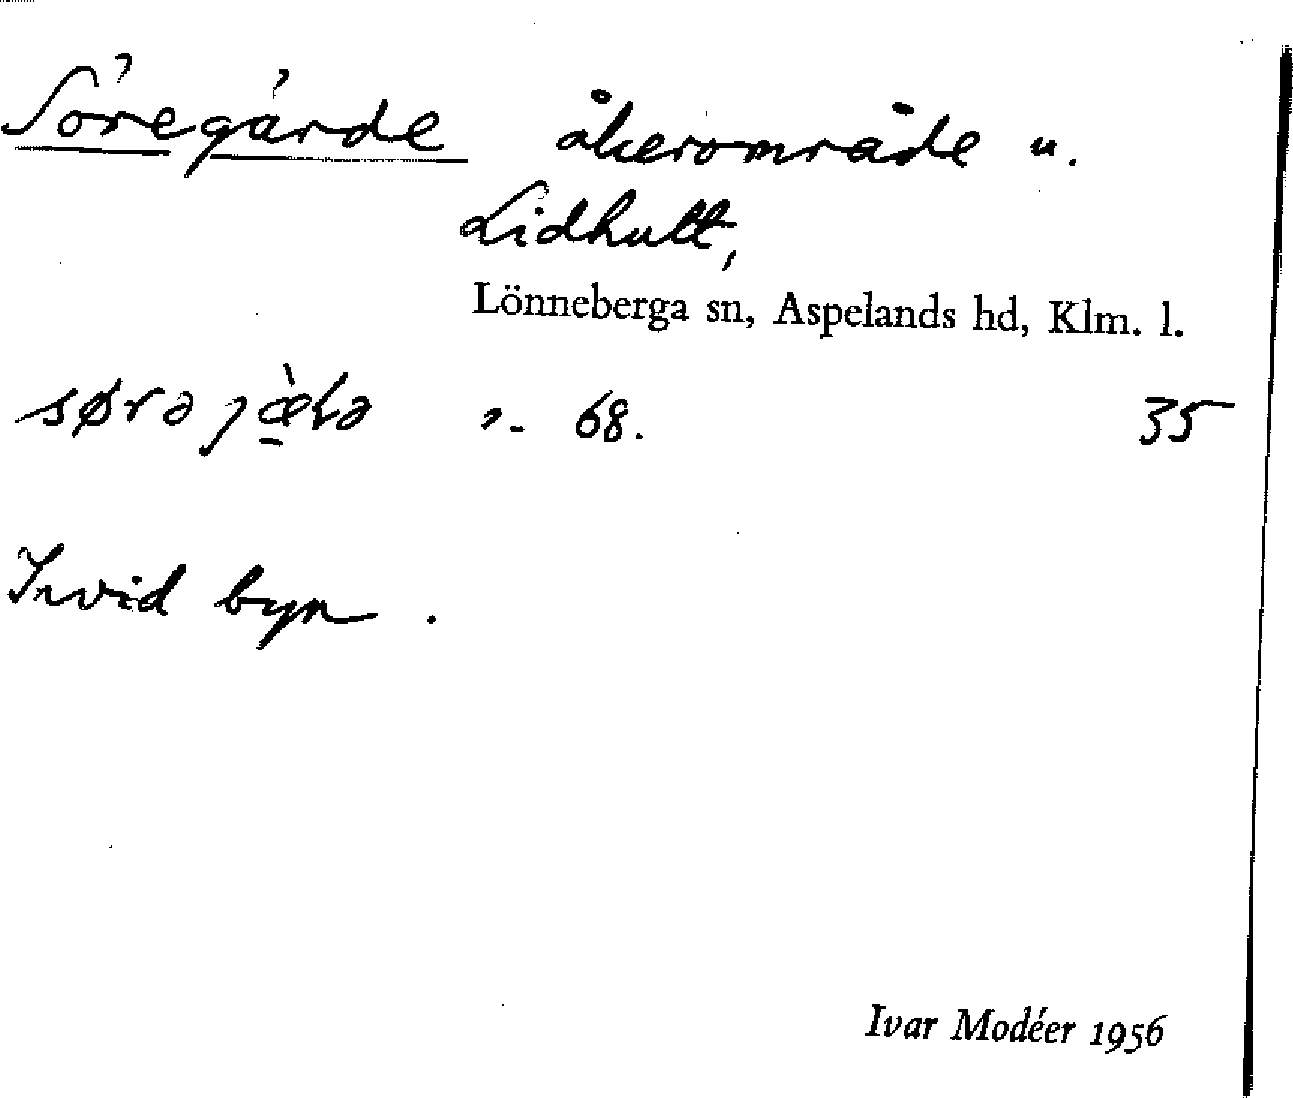 Söregärde åkerområde u.
Lidhult,
Lönneberga sn, Aspelands hd, Klm. l.
sørə 68. 35
Invid byn.
Ivar Modéer 1956